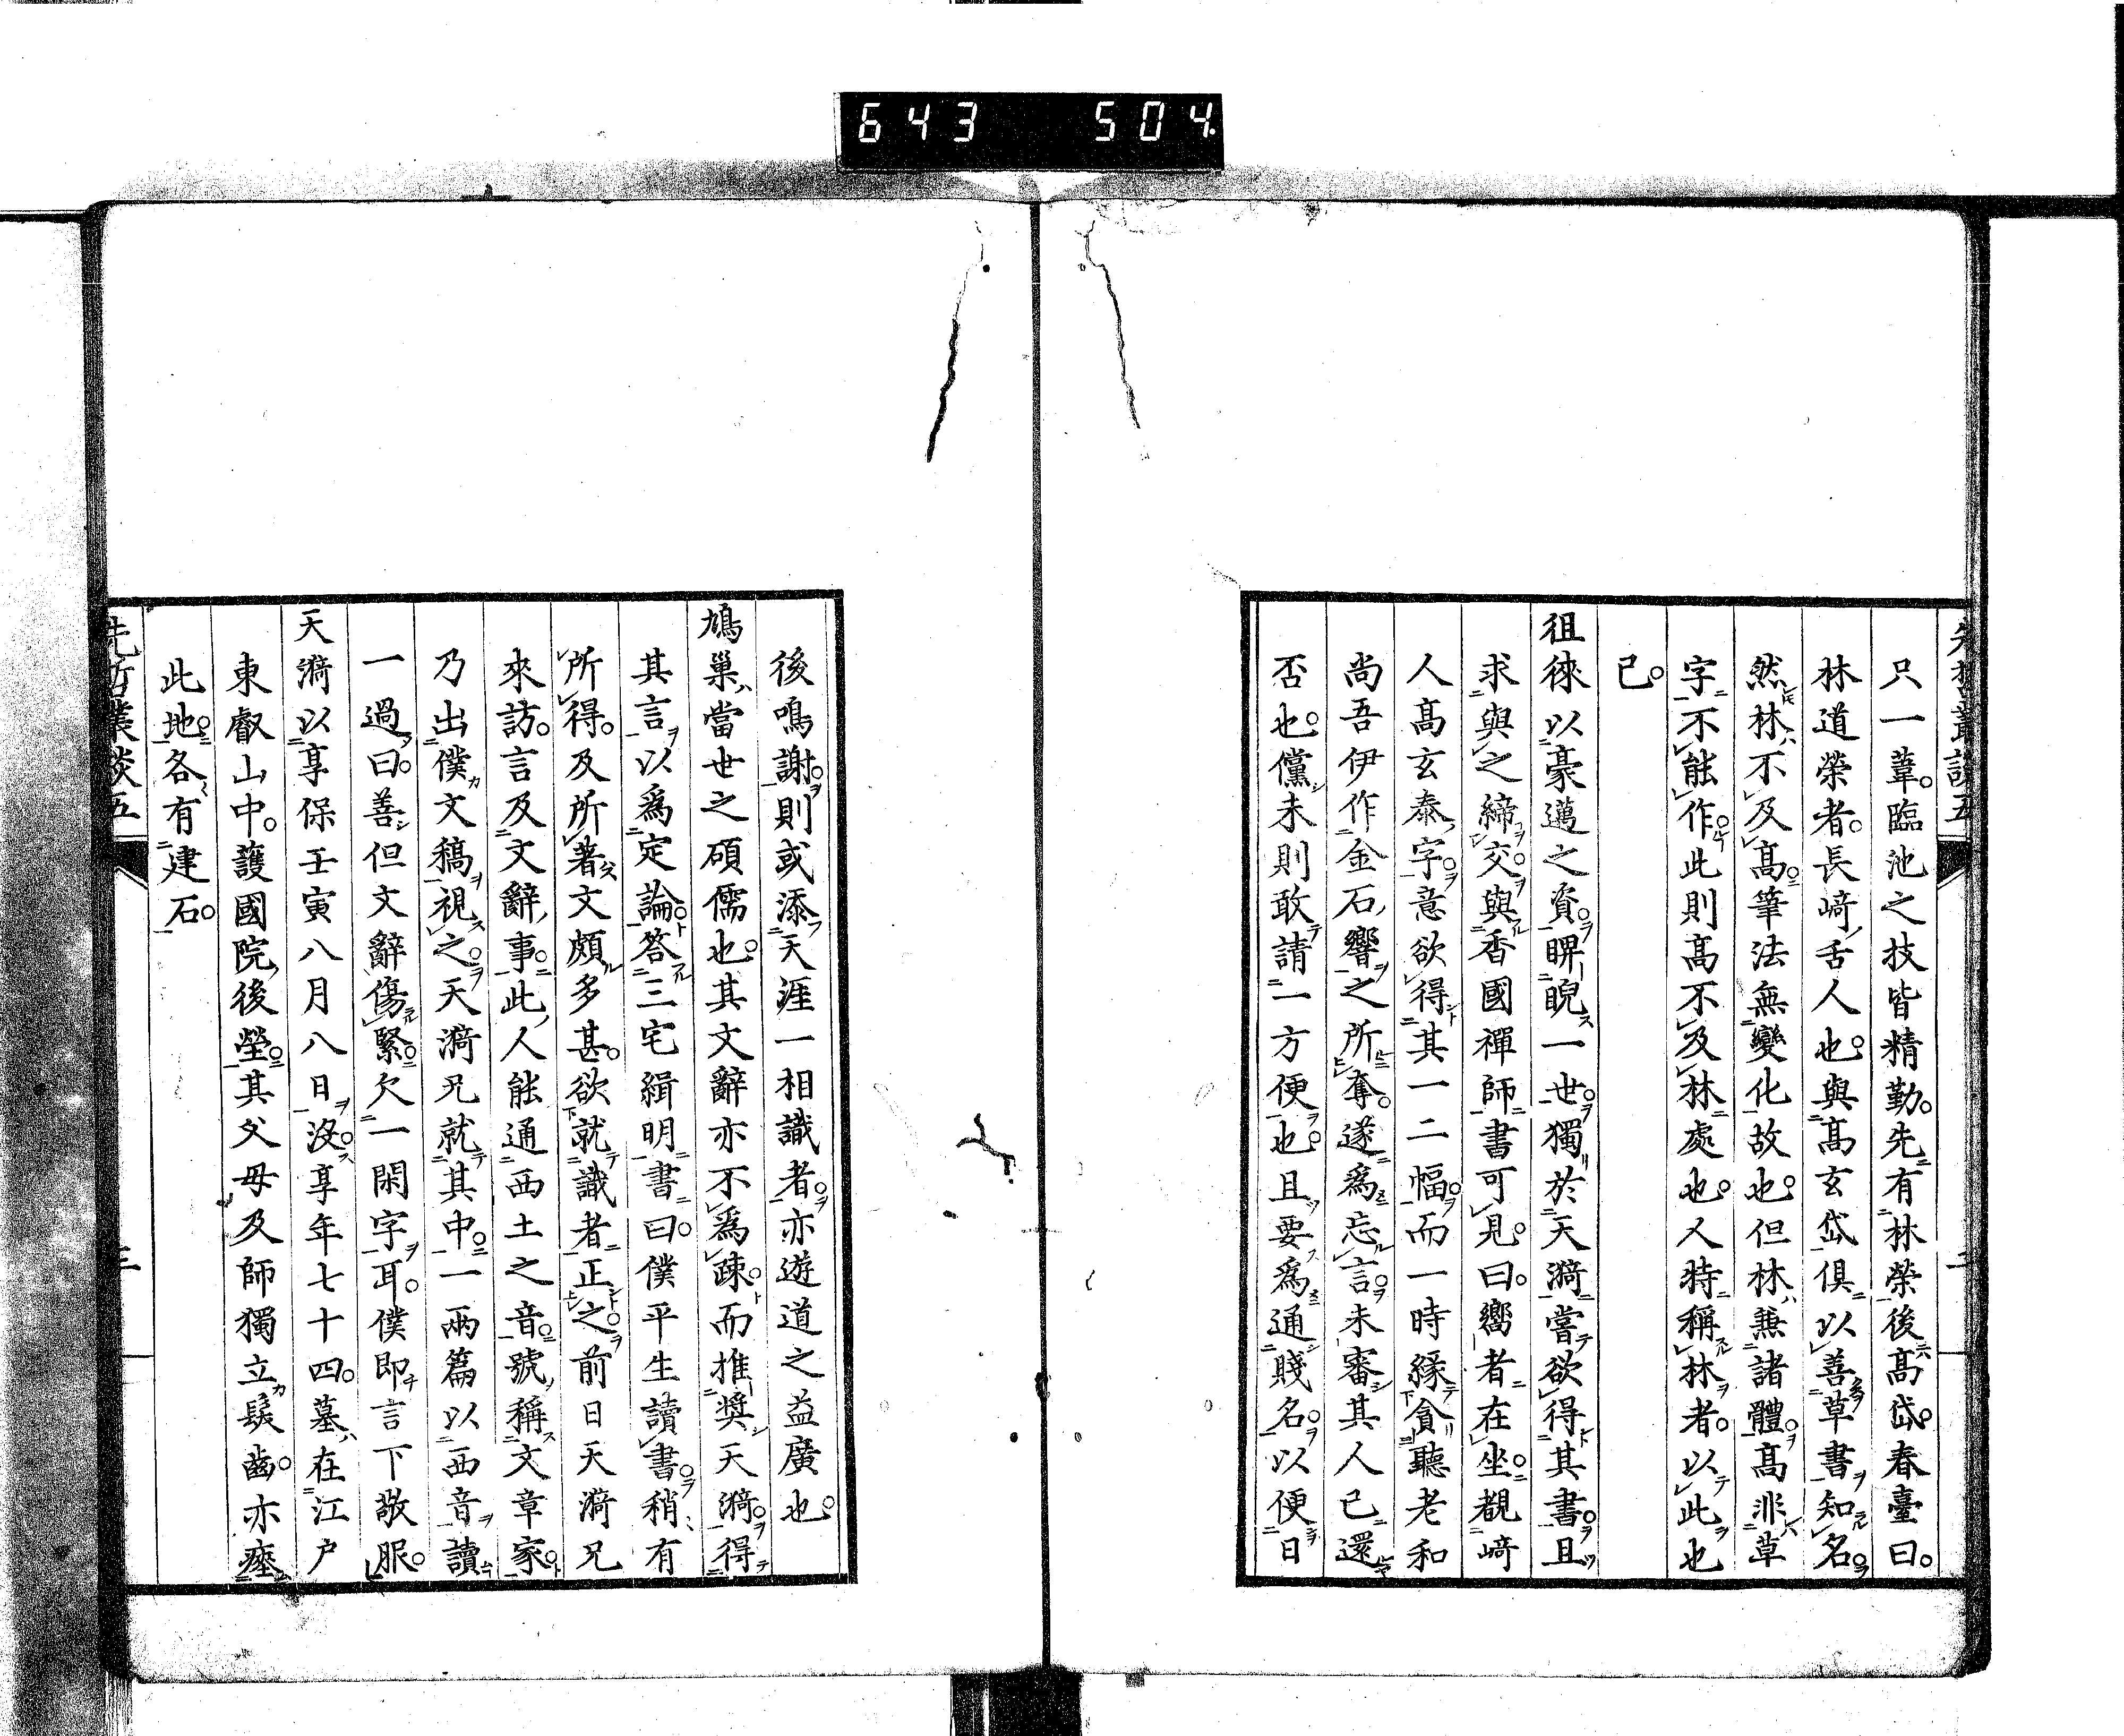 643 504
先哲叢談五
二
只一葦。臨池之技皆精勤。先有林榮後高岱。春臺曰。
林道榮者。長﨑舌人也。與高玄岱俱以善草書知名。
然林不及高筆法無變化故也。但林兼諸體。高非草
字不能作。此則高不及林處也。人特稱林者。以此也
已。
徂徠以豪邁之資。睥睨一世。獨於天漪嘗欲得其書。且
求與之締交。與香國禪師書可見。曰。嚮者在坐。覩﨑
人高玄泰字。意欲得其一二幅。而一時緣貪聽老和
尚吾伊作金石響之所奪。遂爲忘言。未審其人已還
否也。儻未則敢請一方便也。且要爲通賤名。以便日
後鳴謝。則或添天涯一相識者。亦遊道之益廣也。
鳩巢當世之碩儒也。其文辭亦不爲疎。而推奬天漪。得
其言以爲定論。答三宅緝明書曰。僕平生讀書。稍有
所得。及所著文頗多甚。欲就識者正之。前日天漪兄
來訪。言及文辭事。此人能通西土之音。號稱文章家。
乃出僕文稿視之。天漪兄就其中一兩篇以西音讀
一過。曰。善。但文辭傷緊。欠一閑字耳。僕即言下敬服。
天漪以享保壬寅八月八日沒。享年七十四。墓在江戶
東叡山中。護國院後塋。其父母及師獨立髮齒。亦瘞
此地。各有建石。
先哲叢談五
三